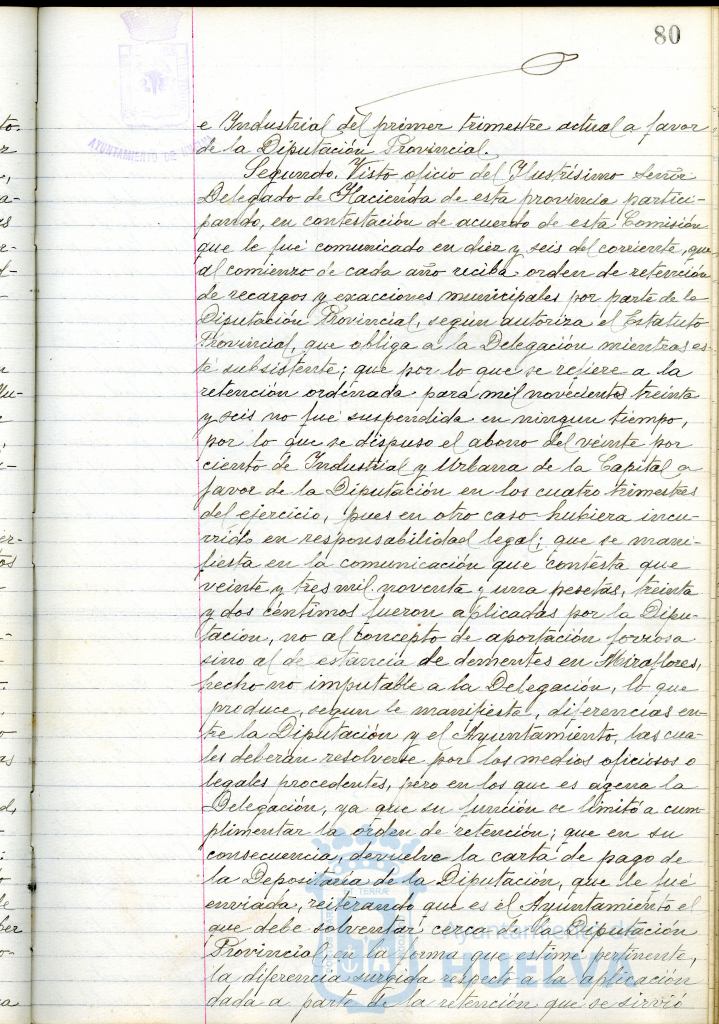 80
AYUNTAMIENTO DE HUELVA
e Industrial del primer trimestre actual a favor
de la Diputación Provincial.
Segundo. Visto oficio del Ilustrísimo Señor
Delegado de Hacienda de esta provincia partici-
pando, en contestación de acuerdo de esta Comisión
que le fué comunicado en diez y seis del corriente, que
al comienzo de cada año recibe orden de retención
de recargos y exacciones municipales por parte de la
Diputación Provincial, según autoriza el Estatuto
Provincial, que obliga a la Delegación mientras es-
té subsistente; que por lo que se refiere a la
retención ordenada para mil novecientos treinta
y seis no fué suspendida en ningun tiempo,
por lo que se dispuso el abono del veinte por
ciento de Industrial y Urbana de la Capital a
favor de la Diputación en los cuatro trimestres
del ejercicio, pues en otro caso hubiera incu-
rrido en responsabilidad legal; que se mani-
fiesta en la comunicación que contesta que
veinte y tres mil noventa y una pesetas, treinta
y dos céntimos fueron aplicadas por la Dipu-
tación, no al concepto de aportación forzosa
sino al de estancia de dementes en Miraflores,
hecho no imputable a la Delegación, lo que
produce, segun le manifiesta, diferencias en-
tre la Diputación y el Ayuntamiento, las cua-
les deberán resolverse por los medios oficiosos o
legales procedentes, pero en los que es agena la
Delegación, ya que su función se limitó a cum-
plimentar la orden de retención; que en su
consecuencia, devuelve la carta de pago de
la Depositaría de la Diputación, que le fué
enviada, reiterando que es el Ayuntamiento el
que debe solventar cerca de la Diputación
Provincial, en la forma que estime pertinente,
la diferencia surgida respecto a la aplicación
dada a parte de la retención que se sirvió
Ayuntamiento de
HUELVA